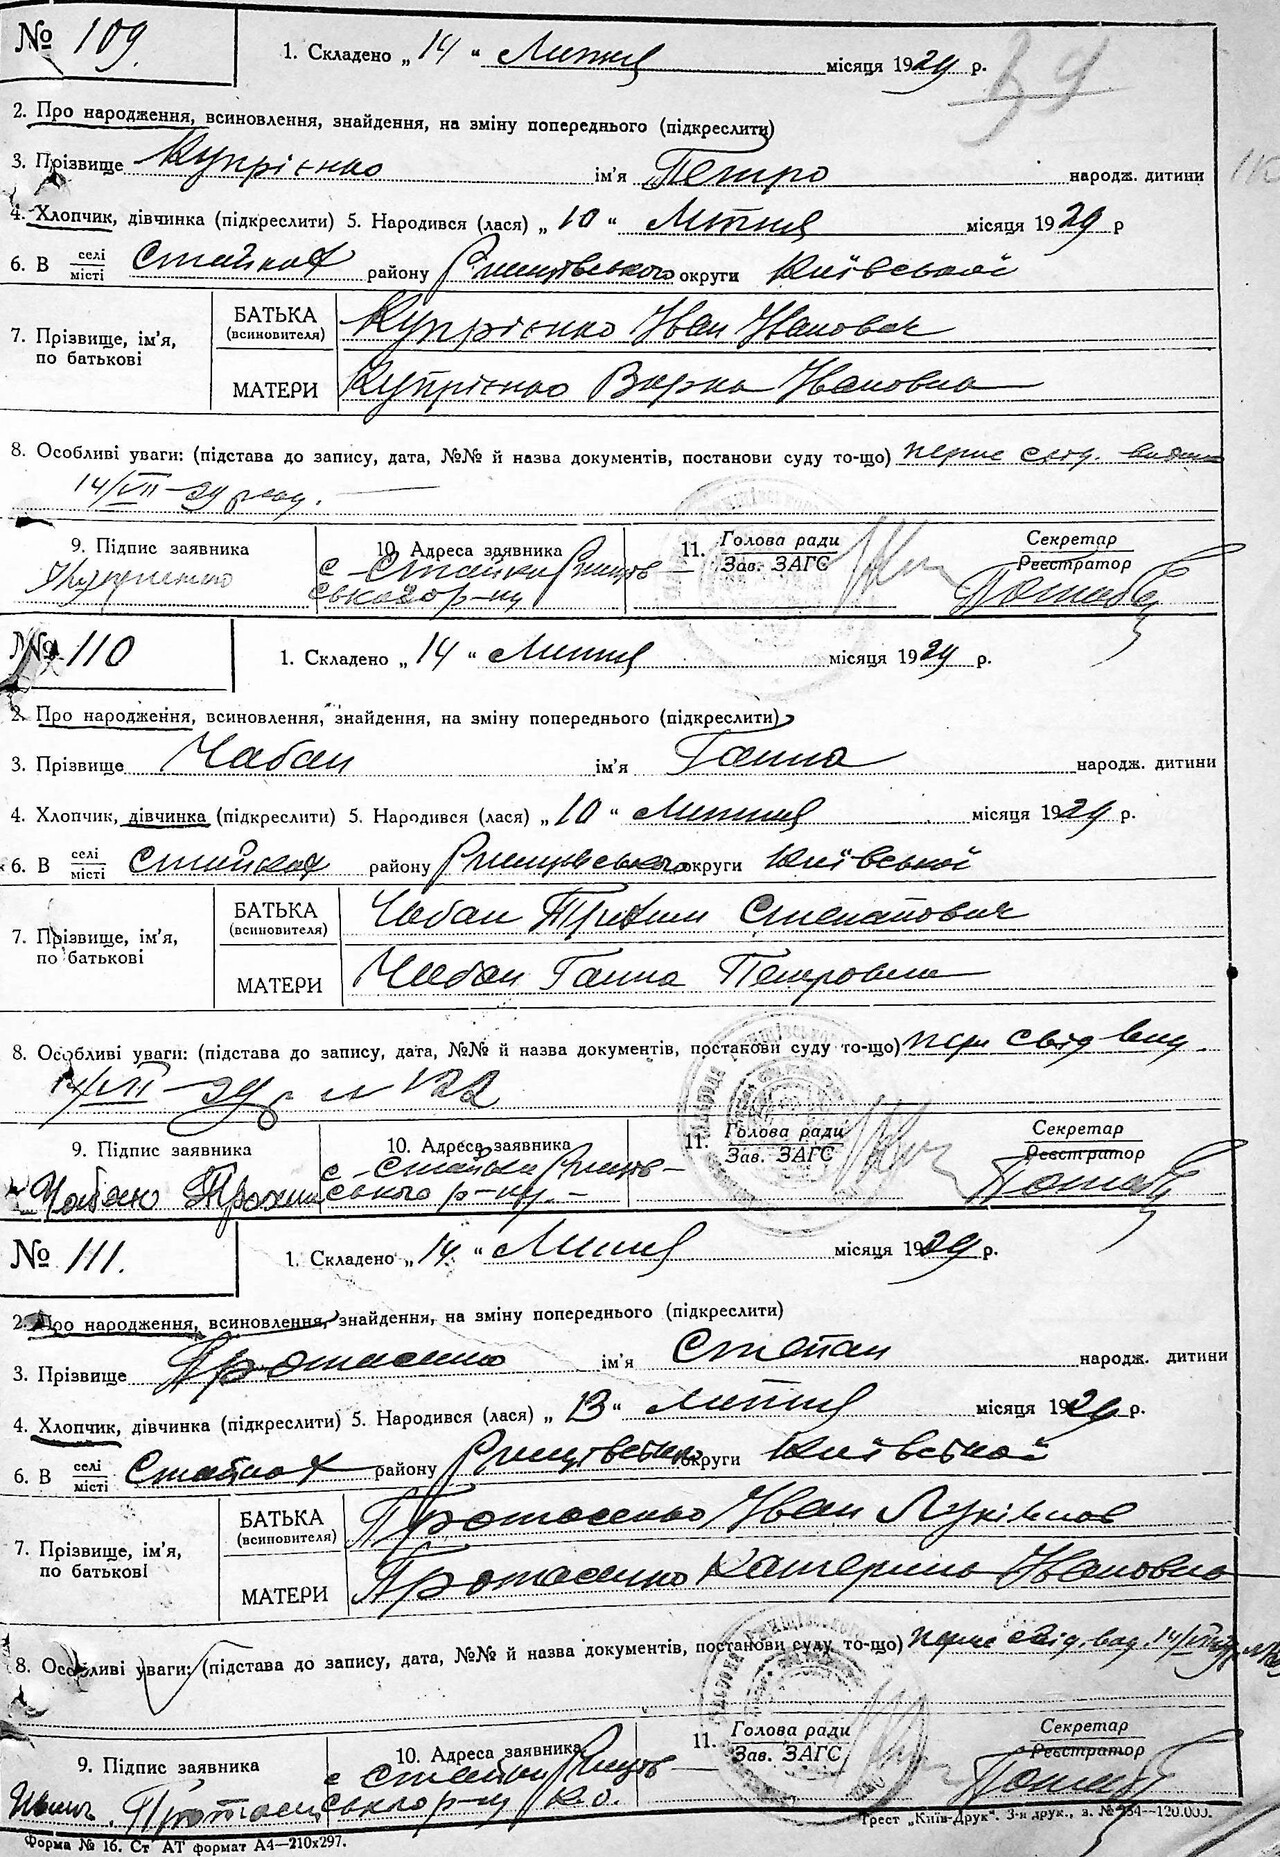 № 109.
1. Складено „ 14 “ Липня місяця 1929 р.
39
2. Про народження, всиновлення, знайдення, на зміну попереднього (підкреслити)
3. Прізвище Купрієнко ім'я Петро народж. дитини
4. Хлопчик, дівчинка (підкреслити) 5. Народився (лася) „ 10 “ Липня місяця 1929 р
6. В селі місті Стайках району Ржищівського округи Київської
7. Прізвище, ім'я, по батькові
БАТЬКА (всиновителя) Купрієнко Іван Іванович
МАТЕРИ Купрієнко Варка Івановна
8. Особливі уваги: (підстава до запису, дата, №№ й назва документів, постанови суду то-що) перше свід.
14/VII-29 року.
9. Підпис заявника
10. Адреса заявника
11. Голова ради Зав. ЗАГС
Секретар Реєстратор
Купрієнко
с-Стайки Ржищів-
ського р-ну
№ 110
1. Складено „ 14 “ Липня місяця 1929 р.
2. Про народження, всиновлення, знайдення, на зміну попереднього (підкреслити)
3. Прізвище Чабан ім'я Ганна народж. дитини
4. Хлопчик, дівчинка (підкреслити) 5. Народився (лася) „ 10 “ Липня місяця 1929 р.
6. В селі місті Стайках району Ржищівського округи Київської
7. Прізвище, ім'я, по батькові
БАТЬКА (всиновителя) Чабан Трохим Степанович
МАТЕРИ Чабан Ганна Петровна
8. Особливі уваги: (підстава до запису, дата, №№ й назва документів, постанови суду то-що) перш свід вид.
14/VII-29 р № 122
9. Підпис заявника
10. Адреса заявника
11. Голова ради Зав. ЗАГС
Секретар Реєстратор
Чабан Трохим
с-Стайки Ржищів-
ського р-ну.-
№ 111.
1. Складено „ 14 “ Липня місяця 1929 р.
2. Про народження, всиновлення, знайдення, на зміну попереднього (підкреслити)
3. Прізвище Протасенко ім'я Степан народж. дитини
4. Хлопчик, дівчинка (підкреслити) 5. Народився (лася) „ 13 “ Липня місяця 1929 р.
6. В селі місті Стайках району Ржищівськ округи Київської
7. Прізвище, ім'я, по батькові
БАТЬКА (всиновителя) Протасенко Іван
МАТЕРИ Протасенко Катерина Івановна
8. Особливі уваги: (підстава до запису, дата, №№ й назва документів, постанови суду то-що) перше свід. вид. 14/VII
9. Підпис заявника
10. Адреса заявника
11. Голова ради Зав. ЗАГС
Секретар Реєстратор
с Стайки Ржищів-
ського р-ну К.О.
Форма № 16. Ст АТ формат А4—210х297.
Трест „Київ-Друк“. 3-я друк., з. № 254—120.000.